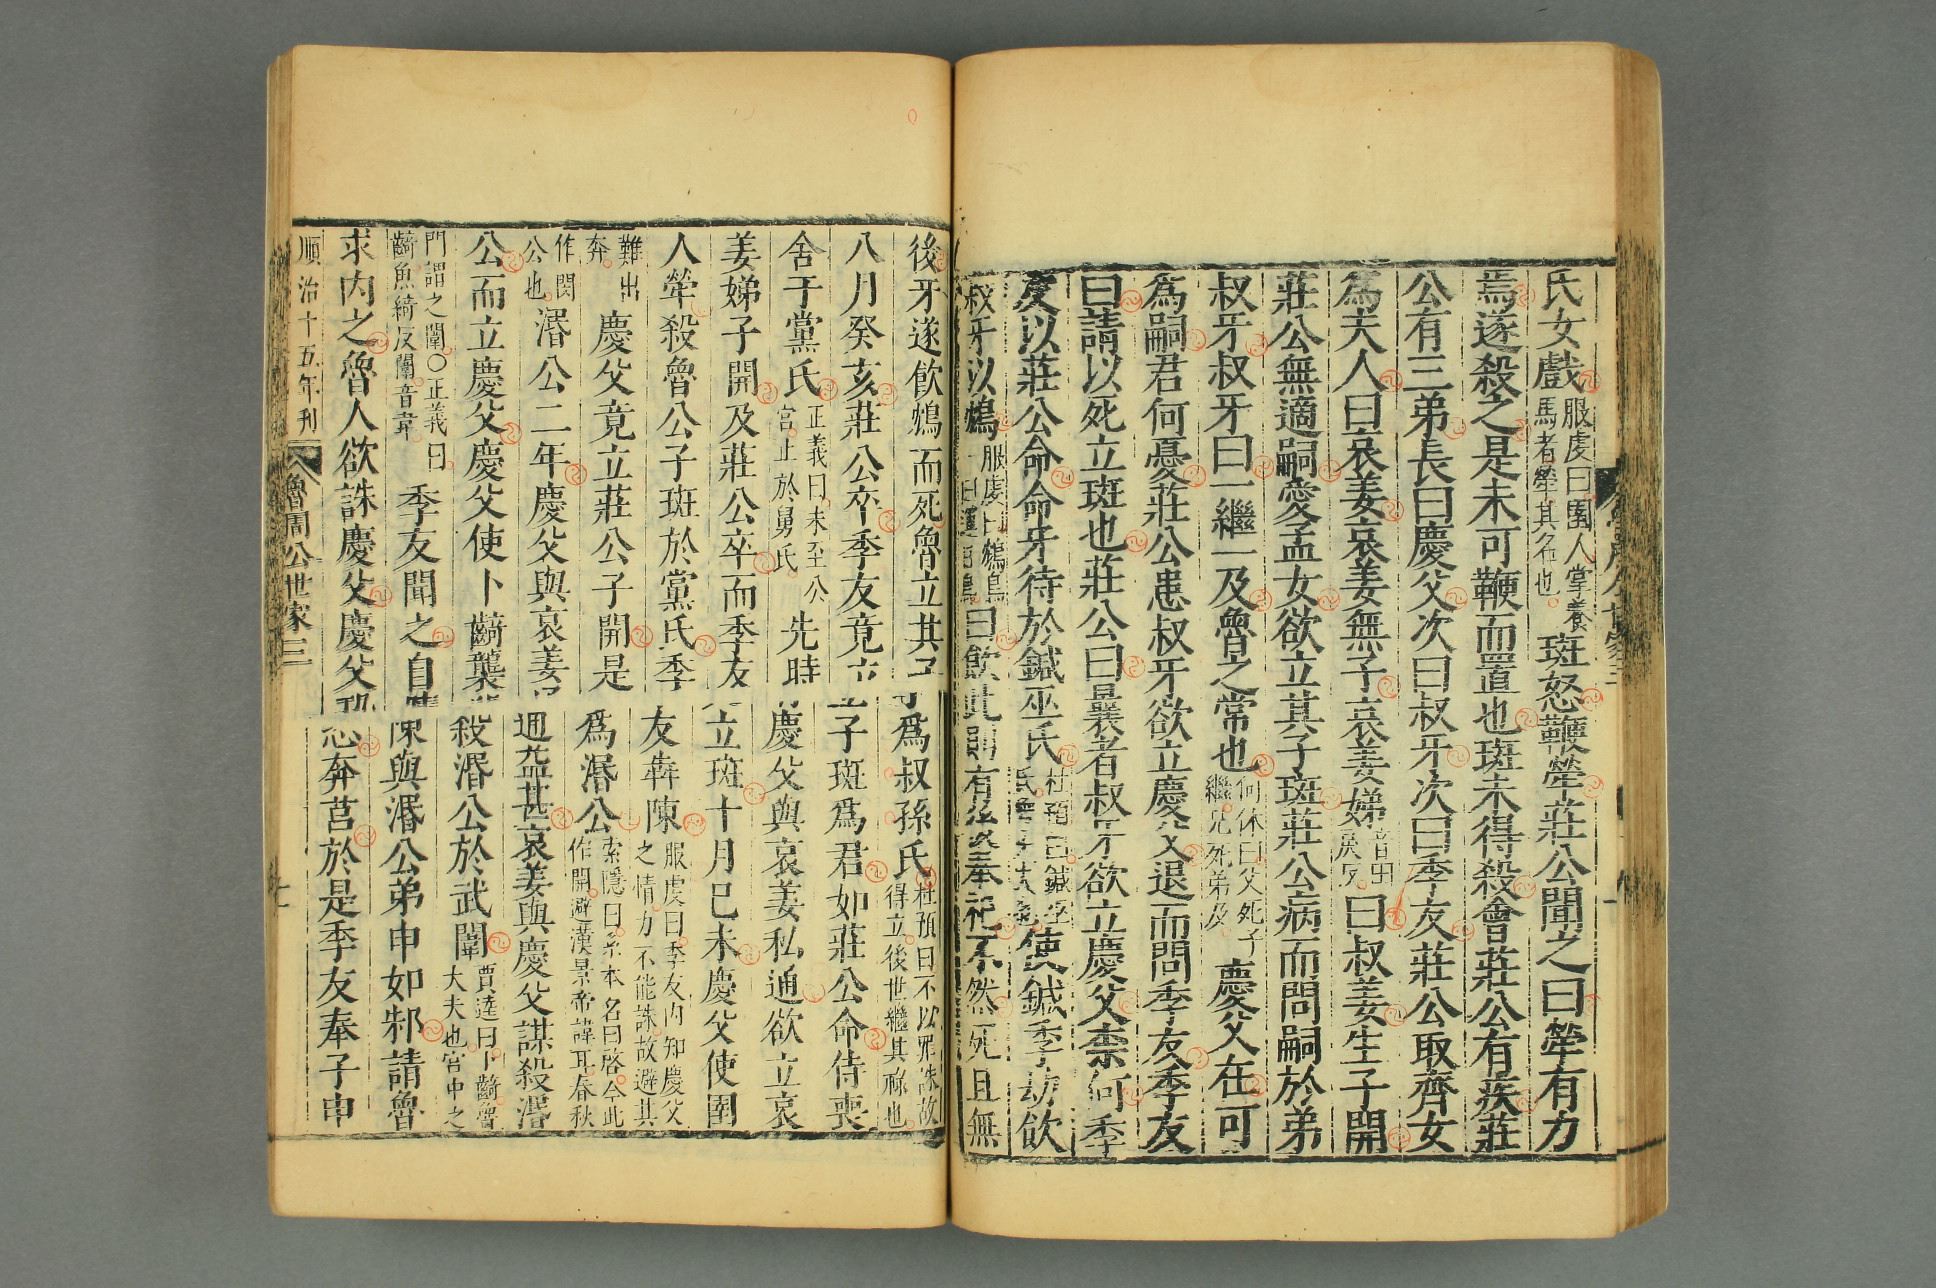 氏女戲服虔曰圉人掌養馬者犖其名也斑怒鞭犖莊公聞之曰犖有力
焉遂殺之是未可鞭而置也斑未得殺會莊公有疾莊
公有三弟長曰慶父次曰叔牙次曰季友莊公取齊女
爲夫人曰哀姜哀姜無子哀姜娣曰叔姜生子開
莊公無適嗣愛孟女欲立其子斑莊公病而問嗣於弟
叔牙叔牙曰一繼一及魯之常也何休曰父死子繼兄死弟及慶父在可
爲嗣君何憂莊公患叔牙欲立慶父退而問季友季友
曰請以死立斑也莊公曰曩者叔牙欲立慶父柰何季
友以莊公命命牙待於鍼巫氏使鍼季劫飲
叔牙以鴆服虔曰鴆鳥曰飲此則有後奉祀不然死且無
後牙遂飲鴆而死魯立其子爲叔孫氏杜預曰不以罪誅故得立後世繼其祿也
八月癸亥莊公卒季友竟立子斑爲君如莊公命侍喪
舍于黨氏正義曰未至公宮止於舅氏先時慶父與哀姜私通欲立哀
姜娣子開及莊公卒而季友立斑十月己未慶父使圉
人犖殺魯公子斑於黨氏季友犇陳服虔曰季友內知慶父之情力不能誅故避其
難出奔慶父竟立莊公子開是爲湣公索隱曰系本名曰啓今此作開避漢景帝諱耳春秋
作閔公也湣公二年慶父與哀姜通益甚哀姜與慶父謀殺湣
公而立慶父慶父使卜齮襲殺湣公於武闈賈逵曰卜齮魯大夫也宮中之
門謂之闈○正義曰齮魚綺反闈音韋季友聞之自陳與湣公弟申如邾請魯
求內之魯人欲誅慶父慶父恐奔莒於是季友奉子申
順治十五年刊 魯周公世家三